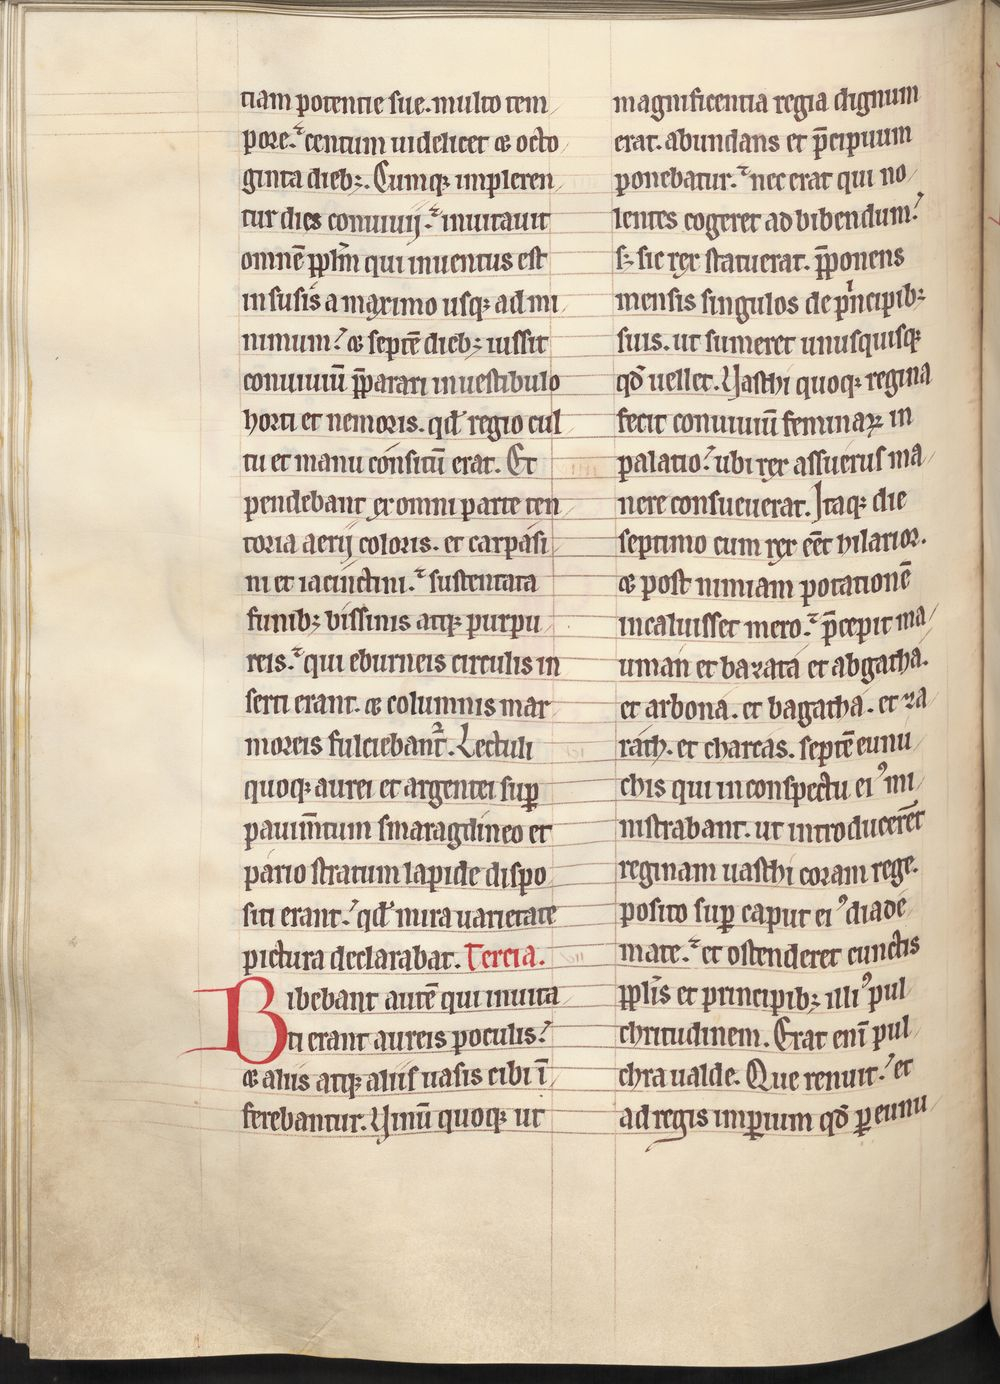 tiam potentie sue. multo tem
pore. centum uidelicet & octo
ginta dieb;. Cumq; impleren
tur dies conuiuij. inuitauit
omnē ppl̄m qui inuentus est
in susis a maximo usq; ad mi
nimum? & septē dieb; iussit
conuiuiū p̄parari in uestibulo
horti et nemoris. qđ regio cul
tu et manu consitū erat. Et
pendebant ex omni parte ten
toria aerij coloris. et carpasi
ni et iacinctini. sustentata
funib; bissinis atq; purpu
reis. qui eburneis circulis in
serti erant. & columnis mar
moreis fulciebant᷑. Lectuli
quoq; aurei et argentei sup̱
pauim̄tum smaragdineo et
pario stratum lapide dispo
siti erant? qđ mira uarietate
pictura declarabat. Tercia.
Bibebant autē qui inuita
ti erant aureis poculis?
& aliis atq; aliis uasis cibi ī
ferebantur. Vinū quoq; ut
magnificentia regia dignum
erat. abundans et p̄cipuum
ponebatur. nec erat qui no
lentes cogeret ad bibendum?
s; sic rex statuerat. p̄ponens
mensis singulos de pⁱncipib;
suis. ut sumeret unusquisq;
qđ uellet. Vasthi quoq; regina
fecit conuiuiū feminaꝝ in
palatio? ubi rex assuerus ma
nere consueuerat. Itaq; die
septimo cum rex eēt hilarior.
& post nimiam potationē
incaluisset mero. p̄cepit ma
uman et bazata et abgatha.
et arbona. et bagatha. et za
rath. et charcas. septē eunu
chis qui in conspectu eiꝰ mi
nistrabant. ut introducerēt
reginam uasthi coram rege.
posito sup̱ caput eiꝰ diade
mate. et ostenderet cunctis
ppl̄is et principib; illiꝰ pul
chritudinem. Erat enī pul
chra ualde. Que renuit? et
ad regis imꝑium qđ ꝑ eunu